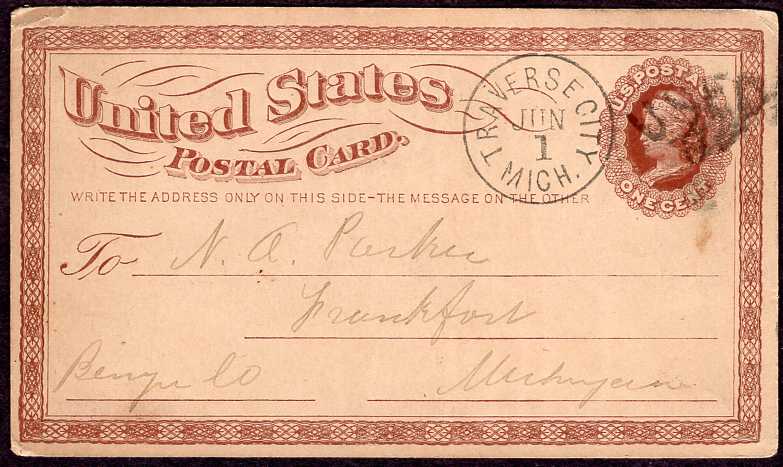 United States
POSTAL CARD.
WRITE THE ADDRESS ONLY ON THIS SIDE–THE MESSAGE ON THE OTHER
TRAVERSE CITY
JUN
1
MICH.
U.S. POSTAGE
ONE CENT
To N. A. Parker
Frankfort
Co
Michigan